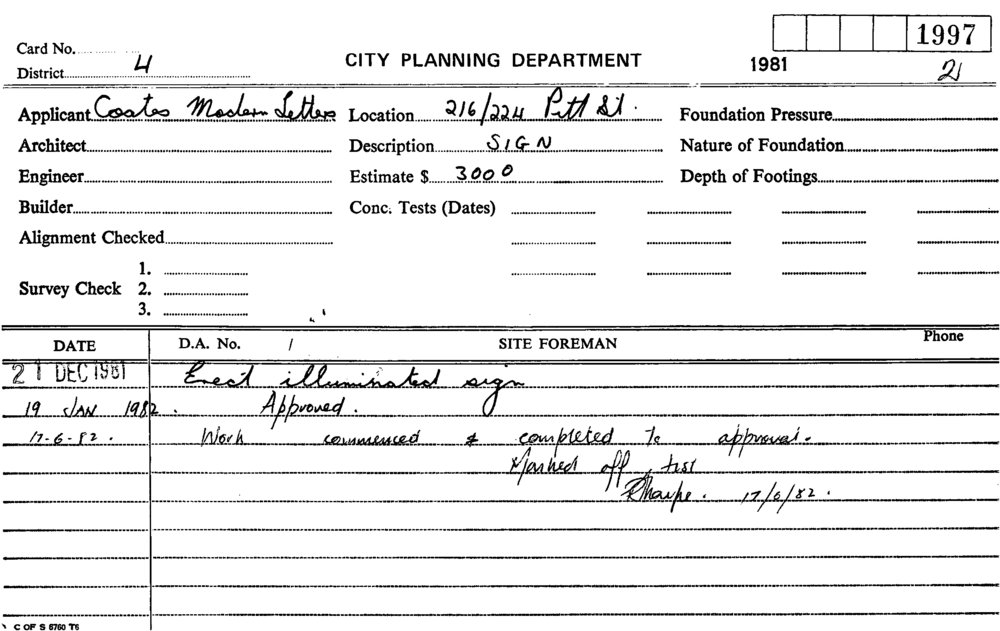 1997
Card No.
District 4 CITY PLANNING DEPARTMENT 1981 21
Applicant Coates Modern Letters Location 216/224 Pitt St. Foundation Pressure
Architect Description SIGN Nature of Foundation
Engineer Estimate $ 3000 Depth of Footings
Builder Conc. Tests (Dates)
Alignment Checked
1.
Survey Check 2.
3.
DATE D.A. No. / SITE FOREMAN Phone
21 DEC 1981 Erect illuminated sign
19 JAN 1982. Approved.
17-6-82. Work commenced & completed to approval.
Marked off list
RSharpe. 17/6/82.
C OF S 6760 T6